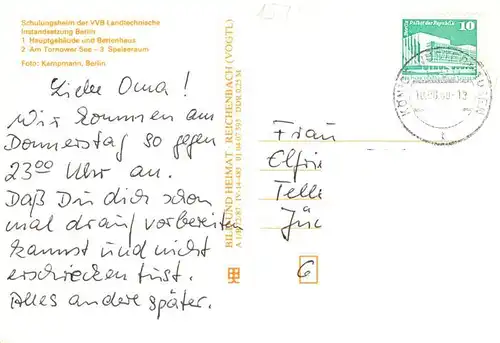 Schulungsheim der VVB Landtechnische
Instandsetzung Berlin
1 Hauptgebäude und Bettenhaus
2 Am Tornower See – 3 Speiseraum
Foto: Kampmann, Berlin
Liebe Oma!
Wir kommen am
Donnerstag so gegen
23⁰⁰ Uhr an.
Daß Du dich schon
mal drauf vorbereiten
kannst und nicht
erschrecken tust.
Alles andere später.
BILD UND HEIMAT REICHENBACH (VOGTL)
Frau
Elfri
Telle
Jüc
6
Palast der Republik
10